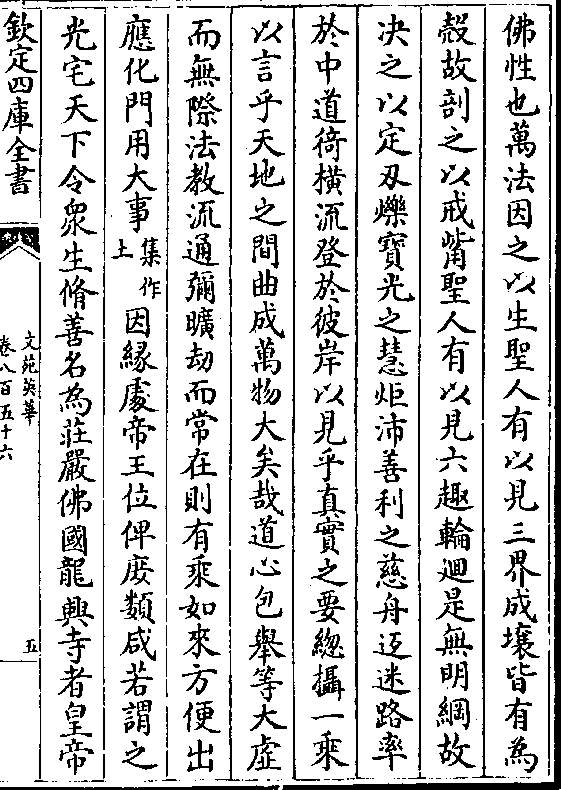 佛性也萬法因之以生聖人有以見三界成壊皆有為
殻故剖之以戒觜聖人有以見六趣輪迴是無明綱故
决之以定刄爍寶光之慧炬沛善利之慈舟迃迷路率
於中道徛橫流登於彼岸以見乎真實之要緫攝一乘
以言乎天地之間曲成萬物大矣哉道心包舉等大虛
而無際法教流通彌曠劫而常在則有乘如來方便出
應化門用大事集作土因緣處帝王位俾庶類咸若謂之
光宅天下令衆生脩善名為莊嚴佛國龍興寺者皇帝
欽定四庫全書
文苑英華
卷八百五十六
五